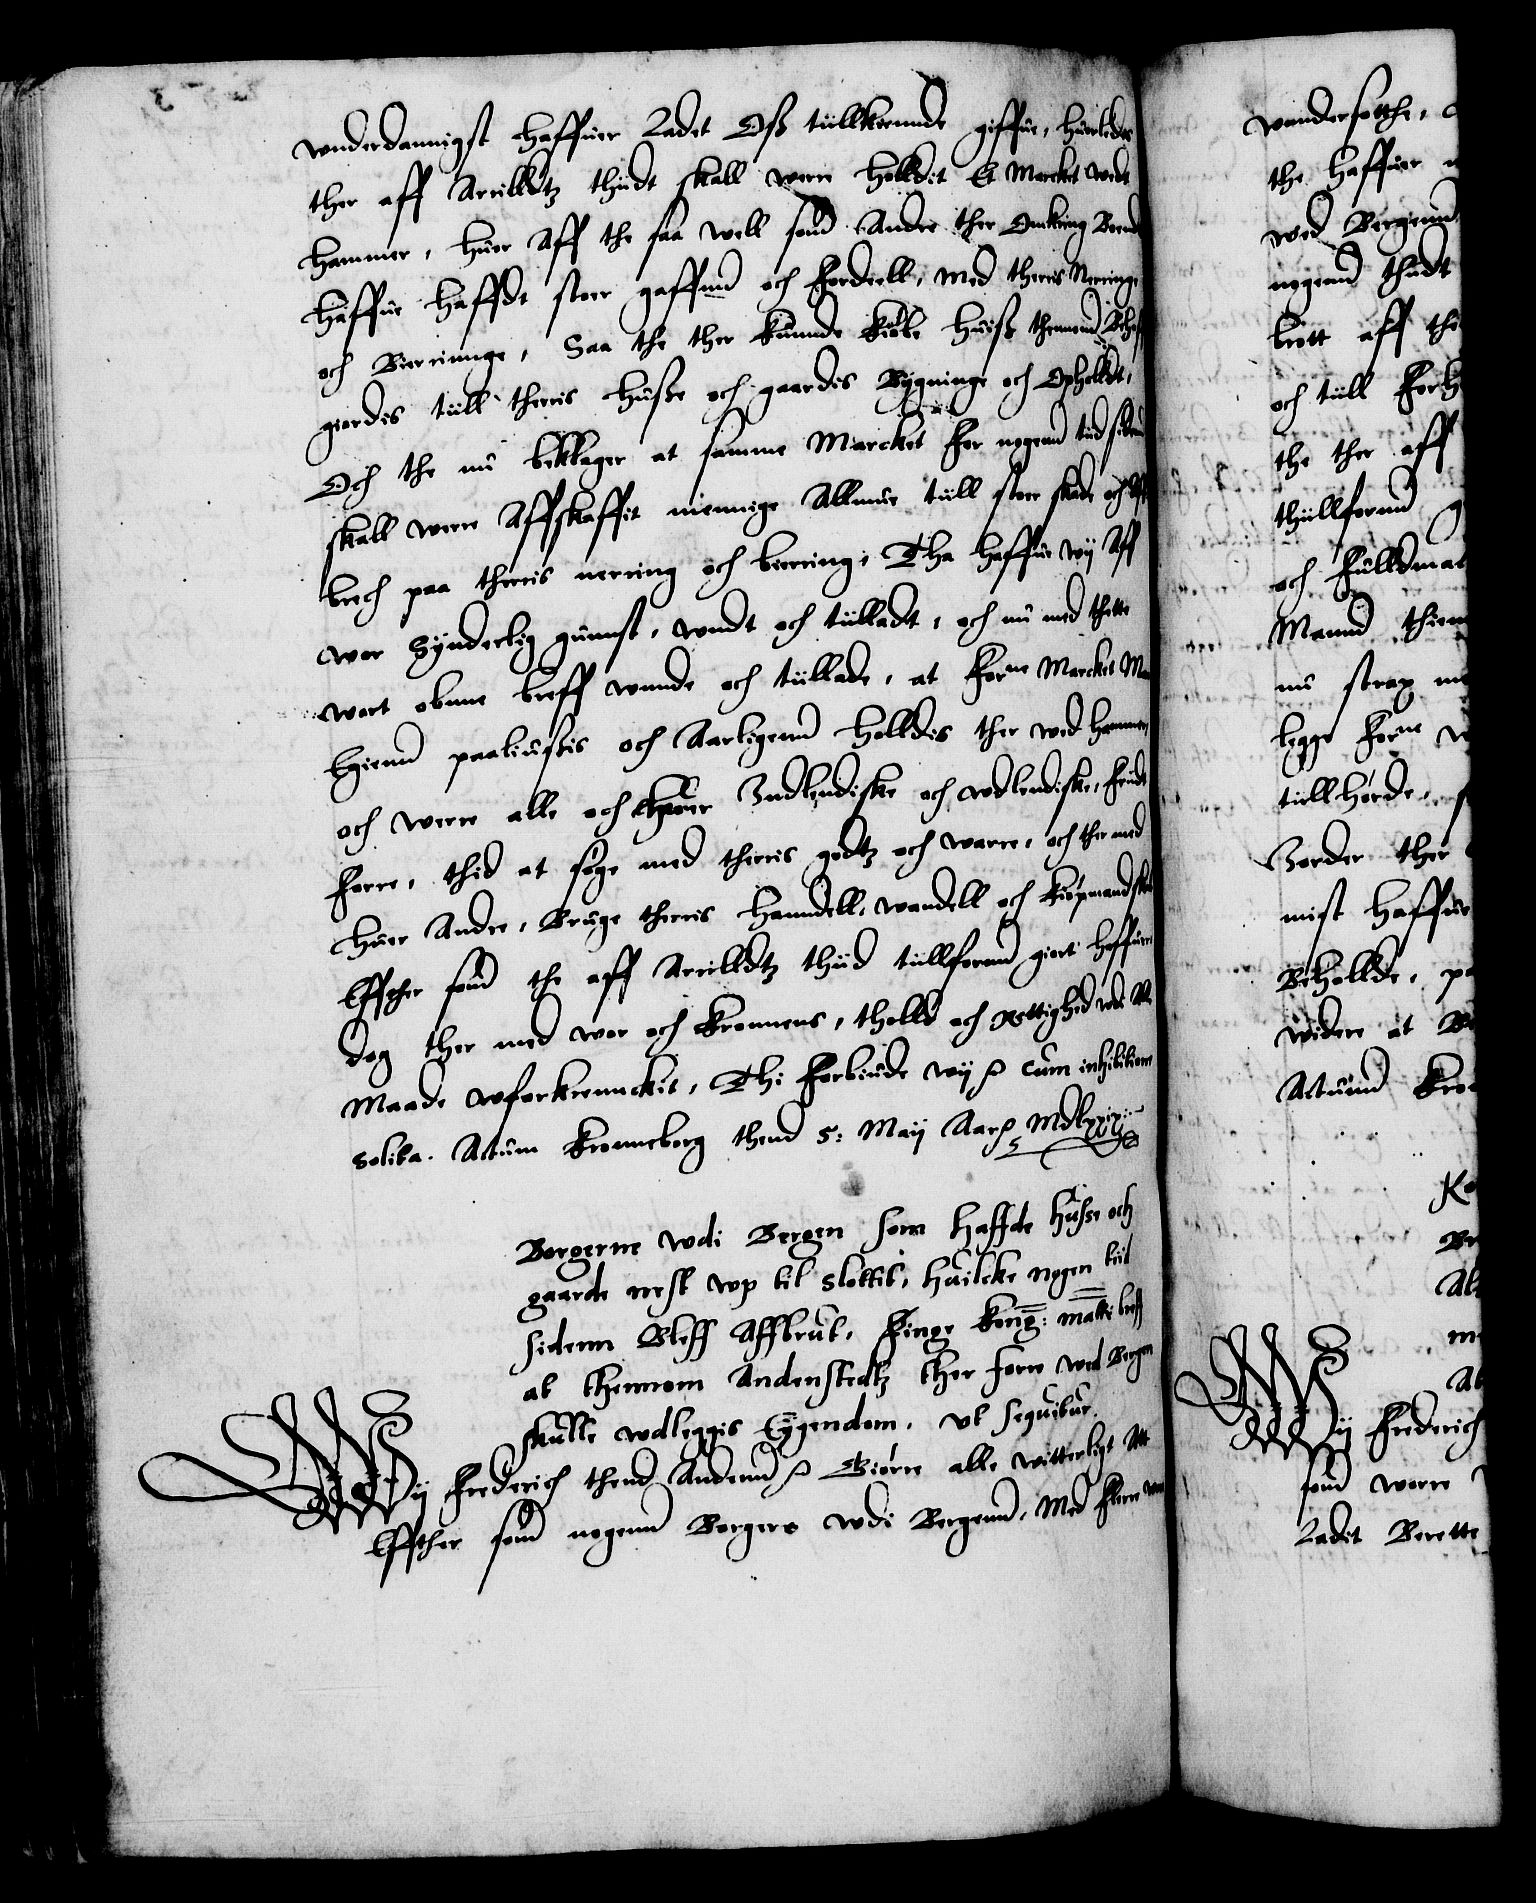 wnderdannigst haffuer Ladet Oß tiillkiennde giffue, huorledes
ther aff Arrilldtz thiidt skall were holldit Et Marcket wedt
Hammer, huer Aff the saa well som Andre ther Omkring Boend
haffue hafft stoer gaffnn och Fordeell, med theris Nerringe
och Bierninge, Saa the ther kunde kiøbe huiß thennom Behoff
giordis tiill theris huße och gaardis Bygninge och Opholldt,
Och the nu beklager at samme Marcket For nogenn tiid sidenn
skall were Affskaffit menige Allmue tiill stoer skade och Aff
brech paa theris nerring och bierring, Tha haffue wij Aff
wor Synderlig gunnst, wndt och tiilladt, och nu med thette
wort obnne breff wnnde och tiillade, at Forne Marcket Maa
Igienn paaliußis och Aarligenn holldis ther wed Hammer,
och were alle och huer Indlendiske och wdlendiske, friidt
forre, thid at søge med theris godtz och warre, och ther med
huer Andre, Bruge theris hanndell, wandell och kiøpmandskab
Effther som the aff Arrilldtz thiid tiillforenn giort haffuer
dog ther med wor och Kronnens, tholld och Rettighed wdi Alle
Maade wforkrenncket, Thi Forbiude wij cum inhibitione
solita. Actum Kronneborg thend 5: Maij Aar Mdlxxix
Borgerne wdi Bergen som haffde husse och
gaarde nest wp til Slottit, huilcke nogen tiid
sidenn Bleff Affbrut, Finge Kong: Matts breff
at thennom Andenstedtz ther Forre wed Bergen
skulle wdleggis Eygendom, ut sequitur.
Wij Frederich thend Andenn Giøre alle witterligt Att
Effther som nogenn Borgere wdi Bergenn, Med Flere wor
wandersotthe,
the haffuer
wed Bergenn
nogenn thiidt
brott aff
och tiill
the ther aff
thiillforenn
och
Mannd
nu strax
legge Forne
tiillhørde,
Jorder ther
mist haffue
Beholde,
widere at
Actum
Wij Frederich
som worre
Ladit Berette